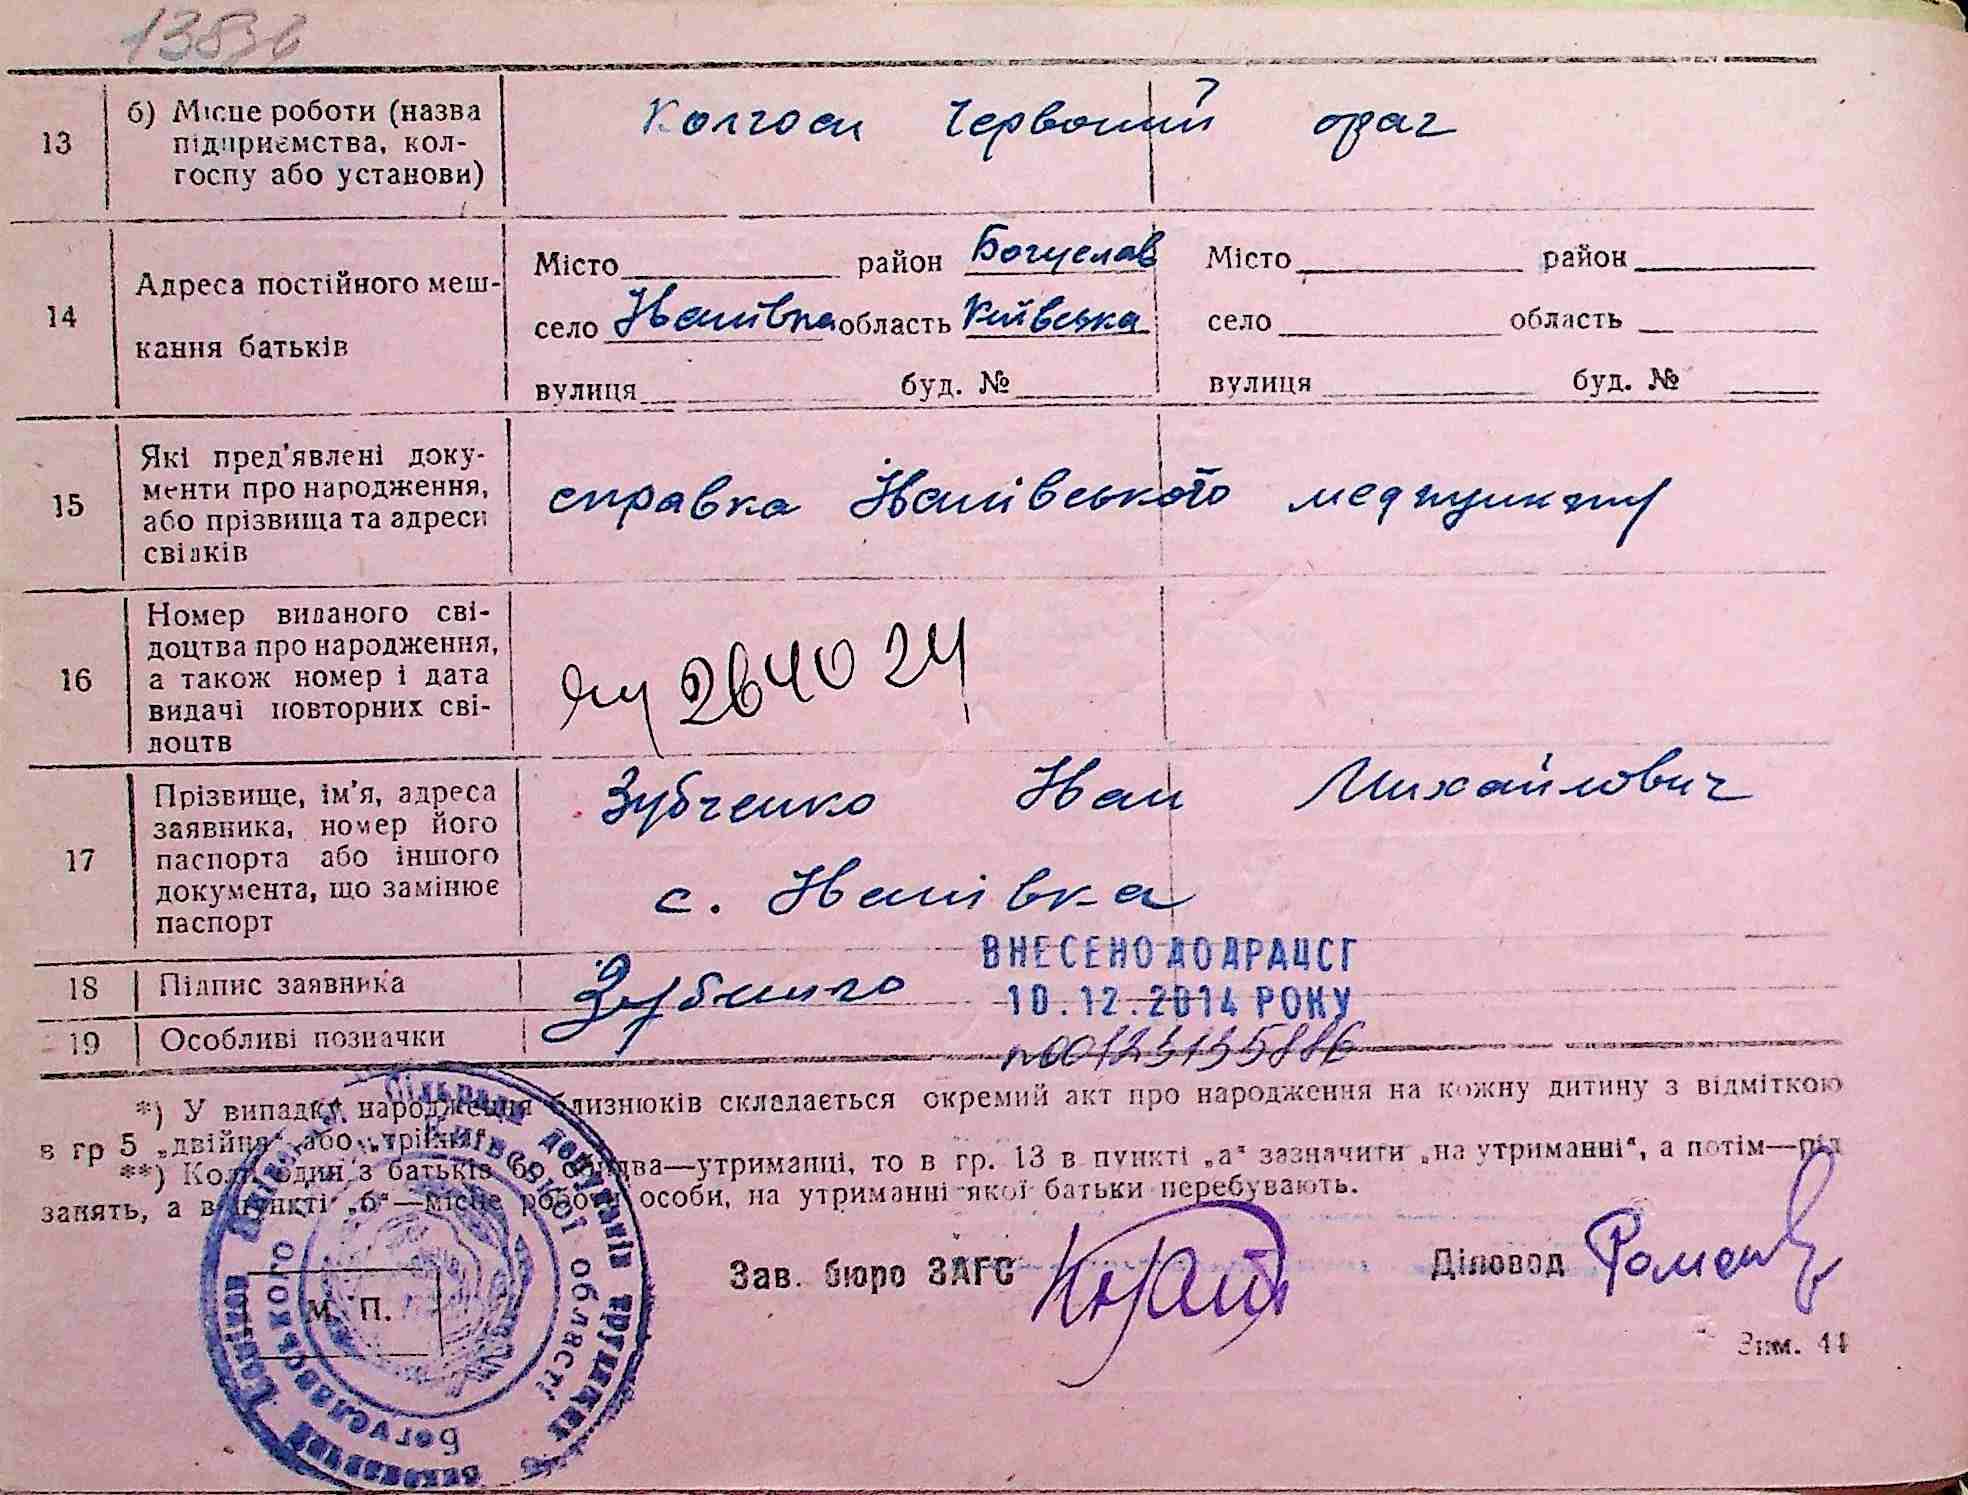 13
б) Місце роботи (назва
підприємства, кол-
госпу або установи)
Колгосп Червоний орач
14
Адреса постійного меш-
кання батьків
Місто район Богуслав
село Іванівка область Київська
вулиця буд. №
Місто район
село область
вулиця буд. №
15
Які пред'явлені доку-
менти про народження,
або прізвища та адреси
свідків
справка Іванівського медпункту
16
Номер виданого сві-
доцтва про народження,
а також номер і дата
видачі повторних сві-
доцтв
264024
17
Прізвище, ім'я, адреса
заявника, номер його
паспорта або іншого
документа, що замінює
паспорт
Зубченко Іван Михайлович
с. Іванівка
ВНЕСЕНО ДО ДРАЦСГ
10.12.2014 РОКУ
18
Підпис заявника
19
Особливі позначки
*) У випадку народження близнюків складається окремий акт про народження на кожну дитину з відміткою
в гр 5 „двійня“ або „трійня“.
**) Коли один з батьків бо обидва—утриманці, то в гр. 13 в пункті „а“ зазначити „на утриманні“, а потім—рід
занять, а в пункті „б“—місце роботи особи, на утриманні якої батьки перебувають.
Зав. бюро ЗАГС
Діловод
М. П.
Зам. 44